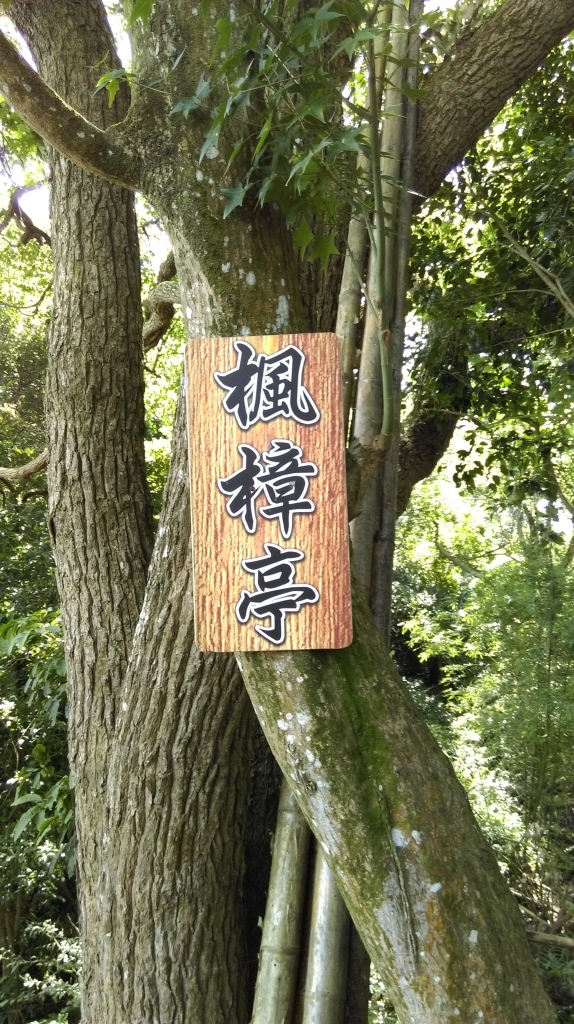 楓樟亭